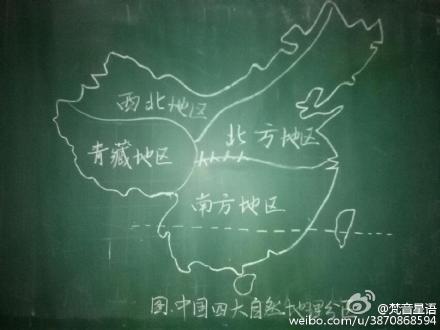 西北地区
北方地区
青藏地区
南方地区
图:中国四大自然地理分区
梵音星语
weibo.com/u/3870868594